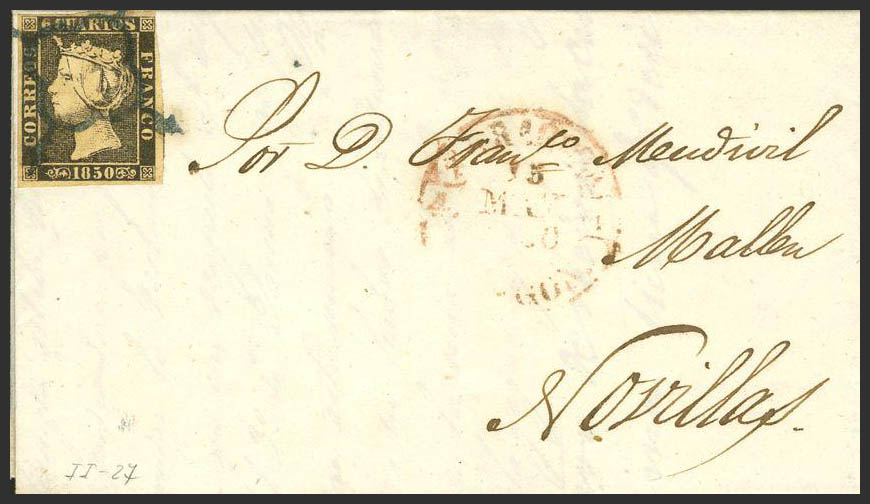 6 CUARTOS
CORREOS
FRANCO
1850
Por D. Fran.co Mendivil
Mallen
Novillas.
15
II-27